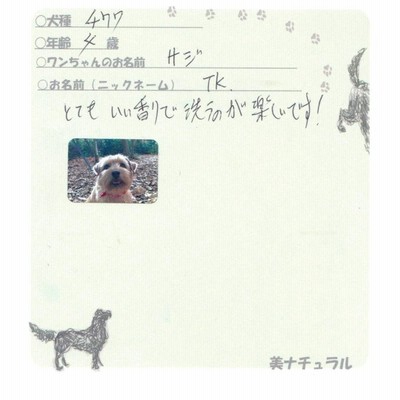 ○犬種 チワワ
○年齢 4 歳
○ワンちゃんのお名前 サジ
○お名前(ニックネーム) TK.
とてもいい香りで洗うのが楽しいです!
美ナチュラル